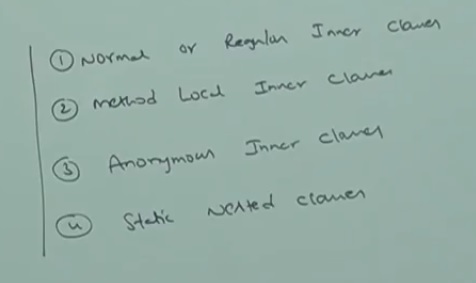 ① Normal or Regular Inner classes
② method Local Inner classes
③ Anonymous Inner classes
④ Static Nested classes